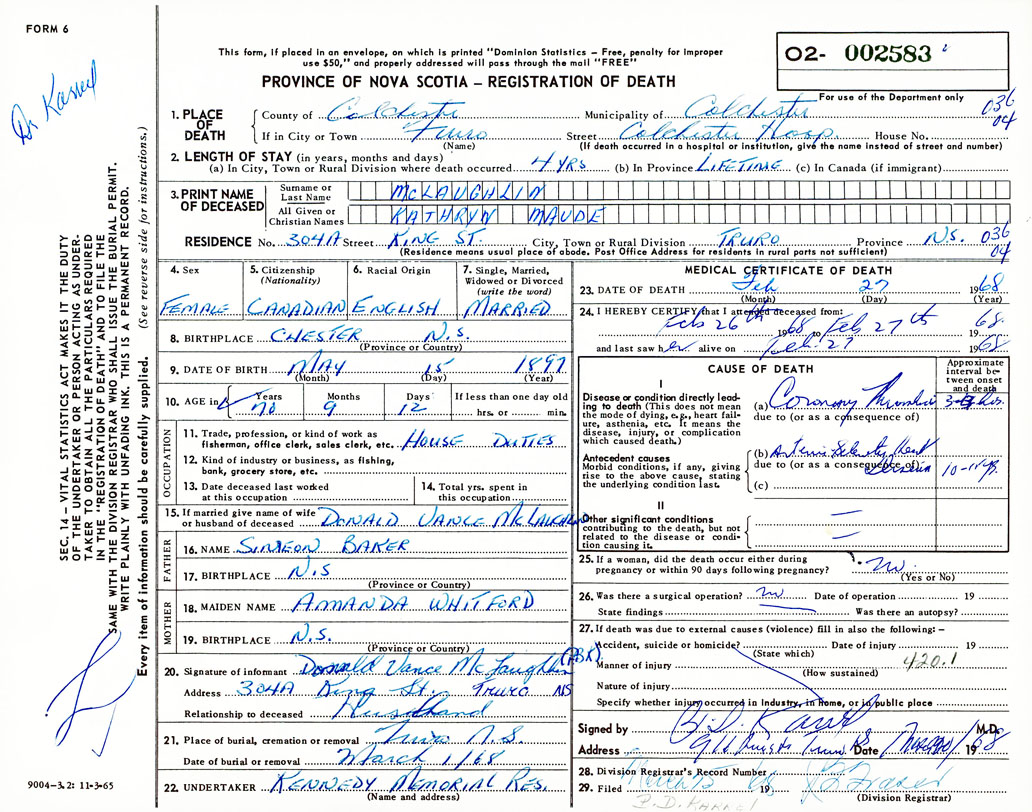 FORM 6
Dr Karrel
This form, if placed in an envelope, on which is printed "Dominion Statistics – Free, penalty for improper
use $50," and properly addressed will pass through the mail "FREE"
O2- 002583
PROVINCE OF NOVA SCOTIA – REGISTRATION OF DEATH
For use of the Department only
036
04
1. PLACE OF DEATH
County of Colchester Municipality of Colchester
If in City or Town Truro Street Colchester Hosp. House No.
(Name) (If death occurred in a hospital or institution, give the name instead of street and number)
2. LENGTH OF STAY (in years, months and days)
(a) In City, Town or Rural Division where death occurred 4 YRS (b) In Province LIFETIME (c) In Canada (if immigrant)
3. PRINT NAME OF DECEASED
Surname or Last Name MCLAUGHLIN
All Given or Christian Names KATHRYN MAUDE
RESIDENCE No. 304A Street KING ST. City, Town or Rural Division TRURO Province N.S. 036
04
(Residence means usual place of abode. Post Office Address for residents in rural parts not sufficient)
4. Sex FEMALE
5. Citizenship (Nationality) CANADIAN
6. Racial Origin ENGLISH
7. Single, Married, Widowed or Divorced (write the word) MARRIED
8. BIRTHPLACE CHESTER N.S.
(Province or Country)
9. DATE OF BIRTH MAY 15 1897
(Month) (Day) (Year)
10. AGE in Years 70 Months 9 Days 12 If less than one day old hrs. or min.
OCCUPATION
11. Trade, profession, or kind of work as
fisherman, office clerk, sales clerk, etc. HOUSE DUTIES
12. Kind of industry or business, as fishing,
bank, grocery store, etc.
13. Date deceased last worked
at this occupation
14. Total yrs. spent in
this occupation
15. If married give name of wife
or husband of deceased DONALD VANCE MCLAUGHLIN
FATHER
16. NAME SIMEON BAKER
17. BIRTHPLACE N.S
(Province or Country)
MOTHER
18. MAIDEN NAME AMANDA WHITFORD
19. BIRTHPLACE N.S.
(Province or Country)
20. Signature of informant Donald Vance McLaughlin
Address 304A King St. Truro NS
Relationship to deceased Husband
21. Place of burial, cremation or removal Truro N.S.
Date of burial or removal March 1/68
22. UNDERTAKER KENNEDY MEMORIAL RES.
(Name and address)
MEDICAL CERTIFICATE OF DEATH
23. DATE OF DEATH Feb 27 1968
(Month) (Day) (Year)
24. I HEREBY CERTIFY that I attended deceased from:
Feb 26th 1968 to Feb 27th 1968
and last saw her alive on Feb. 27 1968
CAUSE OF DEATH
Approximate interval between onset and death
I
Disease or condition directly leading to death (This does not mean the mode of dying, e.g., heart failure, asthenia, etc. It means the disease, injury, or complication which caused death.)
(a) Coronary Thrombosis
due to (or as a consequence of)
Antecedent causes
Morbid conditions, if any, giving rise to the above cause, stating the underlying condition last.
(b) Heart Disease 10-
due to (or as a consequence of)
(c)
II
Other significant conditions contributing to the death, but not related to the disease or condition causing it.
25. If a woman, did the death occur either during
pregnancy or within 90 days following pregnancy? no
(Yes or No)
26. Was there a surgical operation? no Date of operation 19
State findings Was there an autopsy?
27. If death was due to external causes (violence) fill in also the following: –
Accident, suicide or homicide? Date of injury 19
(State which)
Manner of injury 420.1
(How sustained)
Nature of injury
Specify whether injury occurred in Industry, in Home, or in public place
Signed by B.D. Karrel M.D.
Address Truro NS Date 1968
28. Division Registrar's Record Number
29. Filed March 19
(Division Registrar)
B.D. KARREL
SEC. 14 – VITAL STATISTICS ACT MAKES IT THE DUTY
OF THE UNDERTAKER OR PERSON ACTING AS UNDER-
TAKER TO OBTAIN ALL THE PARTICULARS REQUIRED
IN THE "REGISTRATION OF DEATH" AND TO FILE THE
SAME WITH THE DIVISION REGISTRAR WHO SHALL ISSUE THE BURIAL PERMIT.
WRITE PLAINLY WITH UNFADING INK. THIS IS A PERMANENT RECORD.
Every item of information should be carefully supplied. (See reverse side for instructions.)
9004-3.2: 11-3-65